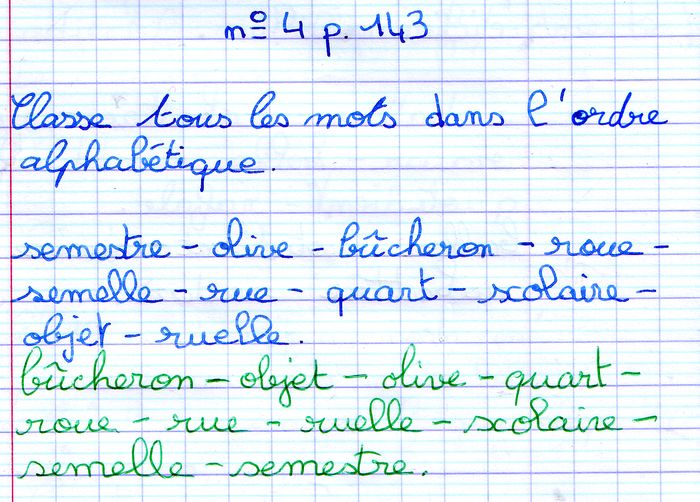 nº 4 p. 143
Classe tous les mots dans l'ordre
alphabétique.
semestre - olive - bûcheron - roue -
semelle - rue - quart - scolaire -
objet - ruelle.
bûcheron - objet - olive - quart -
roue - rue - ruelle - scolaire -
semelle - semestre.